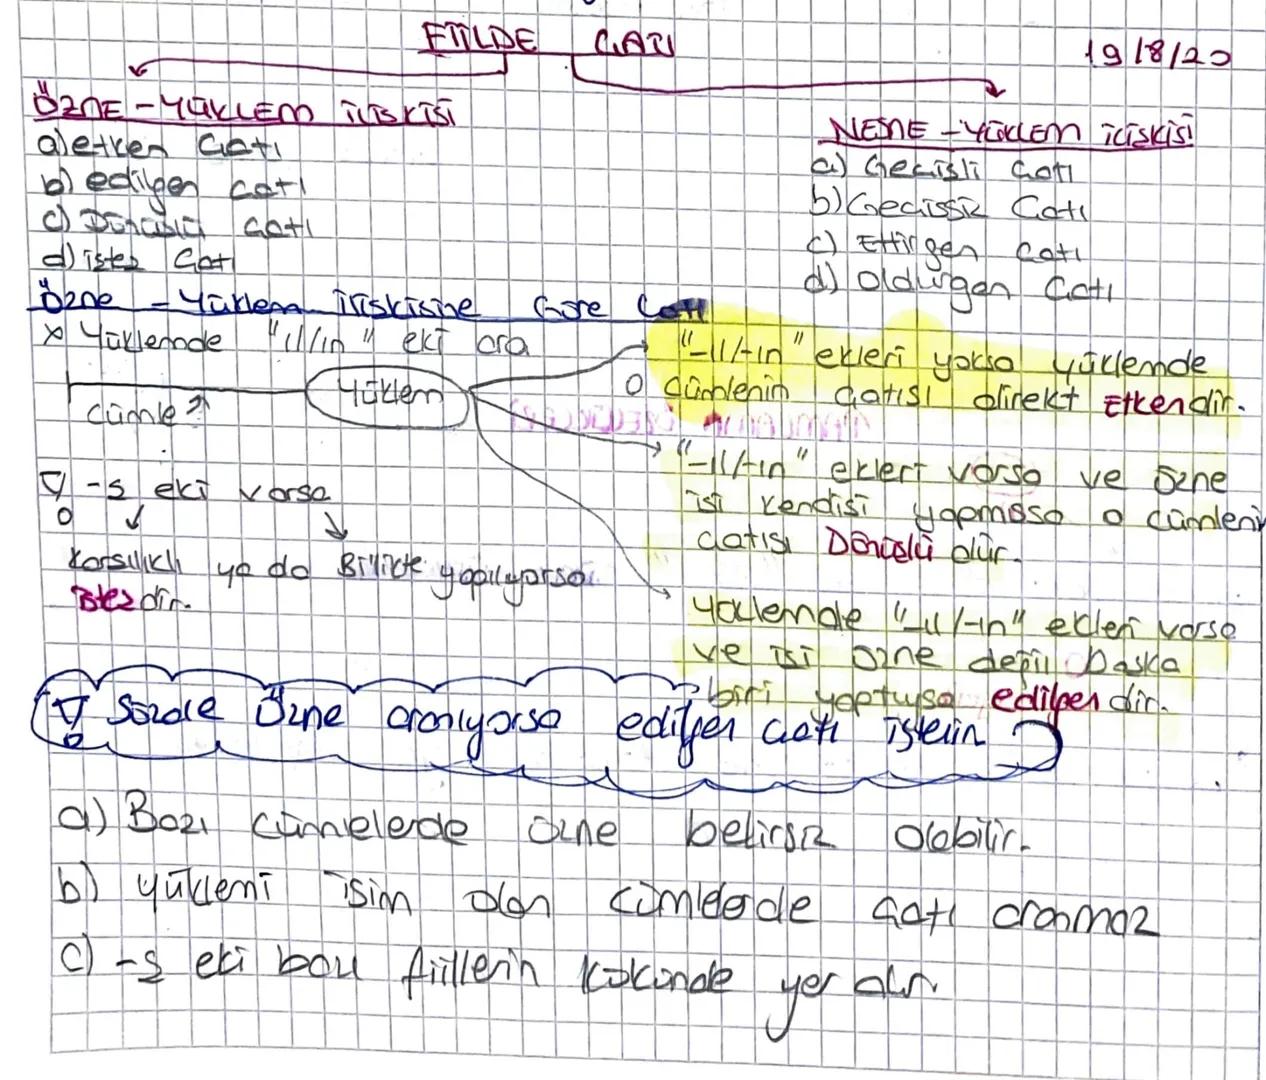 FİİLDE ÇATI
19/8/20
ÖZNE - YÜKLEM İLİŞKİSİ
a) etken Çatı
b) edilgen çatı
c) Dönüşlü Çatı
d) işteş Çatı
NESNE - YÜKLEM İLİŞKİSİ
a) Geçişli Çatı
b) Geçişsiz Çatı
c) Ettirgen Çatı
d) Oldurgan Çatı
Özne - Yüklem İlişkisine Göre Çatı
x Yüklemde "ıl/ın" eki ara
Cümle?
Yüklem
"-ıl/-ın" ekleri yoksa yüklemde
O cümlenin çatısı direkt Etkendir.
"-ıl/-ın" ekleri varsa ve özne
işi kendisi yapmışsa o cümlenin
çatısı Dönüşlü olur.
Yüklemde "-ıl/-ın" ekleri varsa
ve işi özne değil başka
biri yaptuysa edilgendir.
-ş eki varsa
Karşılıklı ya da Birlikte yapılıyorsa
İşteşdir.
Sözde Özne aranıyorsa edilgen çatı işlerin
a) Bazı cümlelerde özne belirsiz olabilir.
b) yüklemi isim olan cümlelerde çatı aranmaz
c) -ş eki bazı fiillerin kökünde yer alır.